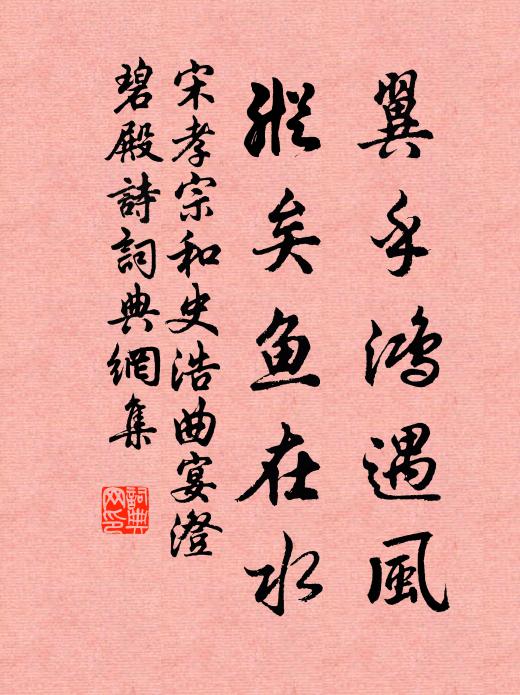 翼乎鴻遇風
縱矣鱼在水
宋孝宗和史浩曲宴澄
碧殿詩詞典網集
詞典
网印